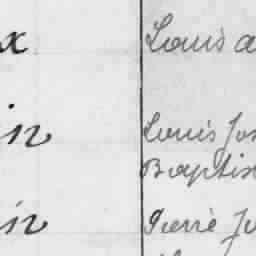 x Louis a
in Louis Jos
Baptis
in Pierre Ju